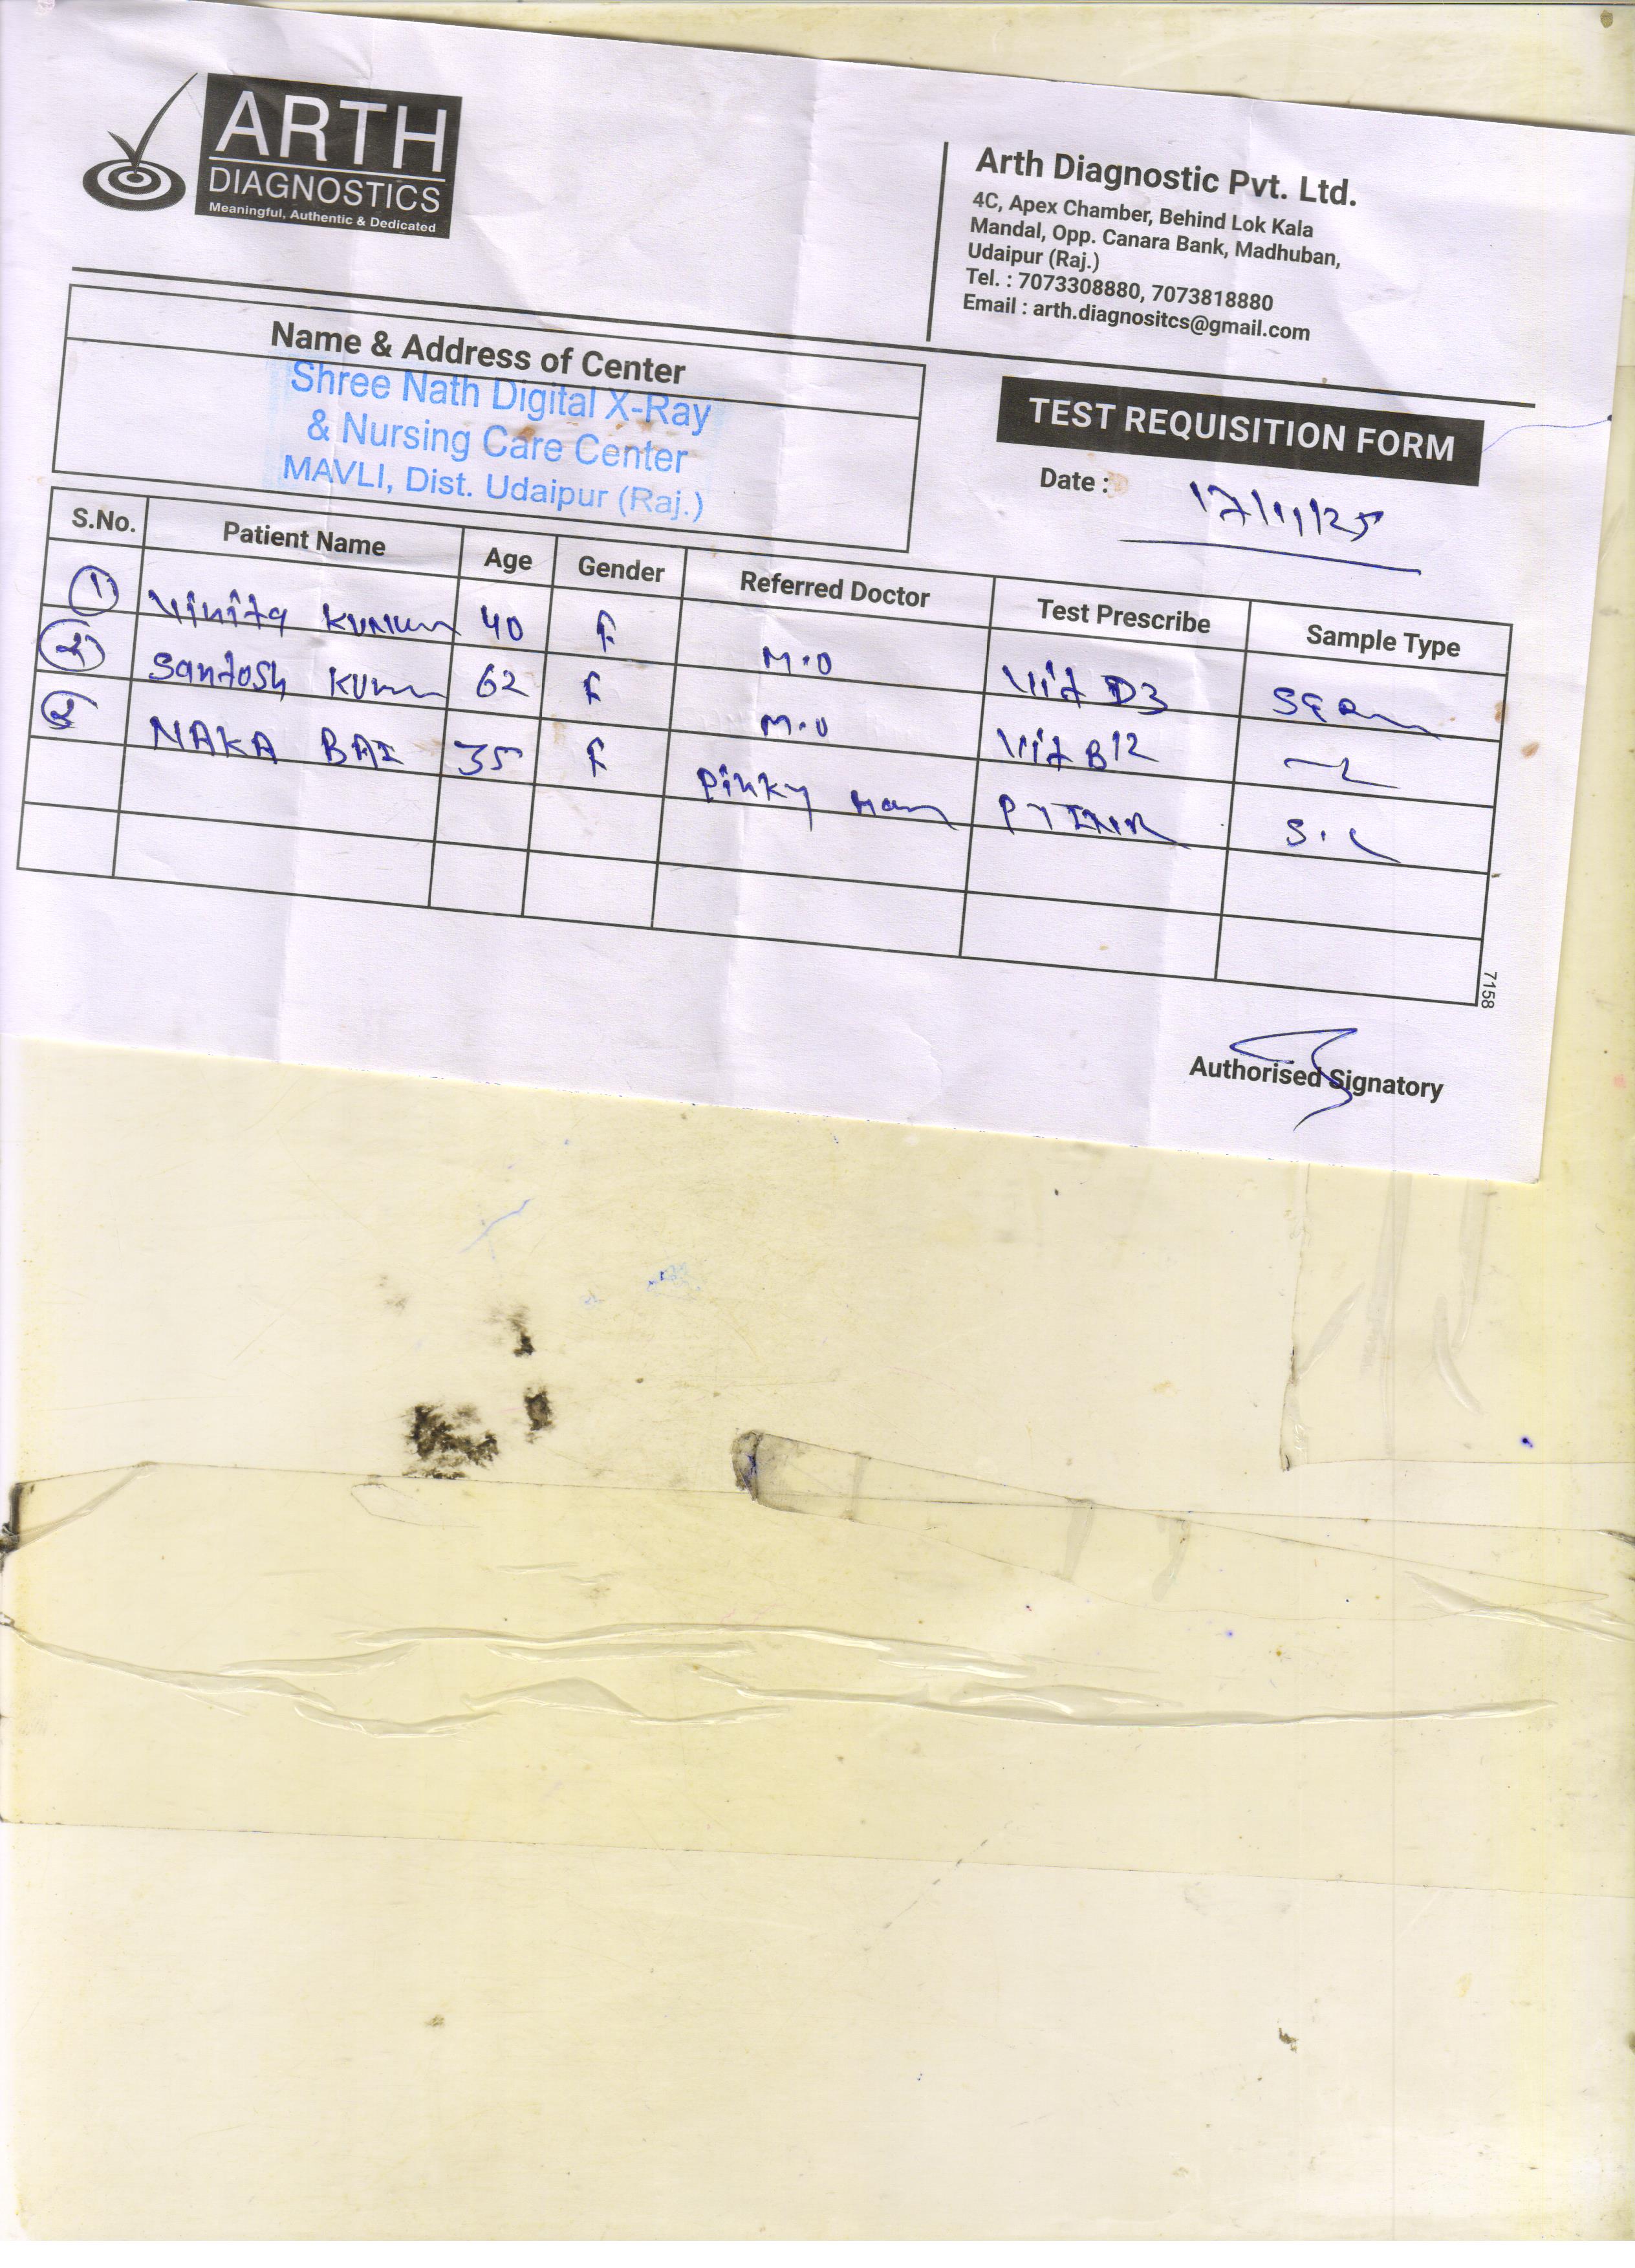 ARTH
DIAGNOSTICS
Meaningful, Authentic & Dedicated
Arth Diagnostic Pvt. Ltd.
4C, Apex Chamber, Behind Lok Kala
Mandal, Opp. Canara Bank, Madhuban,
Udaipur (Raj.)
Tel. : 7073308880, 7073818880
Email : arth.diagnositcs@gmail.com
Name & Address of Center
Shree Nath Digital X-Ray
& Nursing Care Center
MAVLI, Dist. Udaipur (Raj.)
TEST REQUISITION FORM
Date : 17/11/25
S.No. Patient Name Age Gender Referred Doctor Test Prescribe Sample Type
1 Vinita 40 F M.O Vit D3
2 Santosh 62 F M.O Vit B12
NAKA BAI 35 F Pinky PTINR
7158
Authorised Signatory